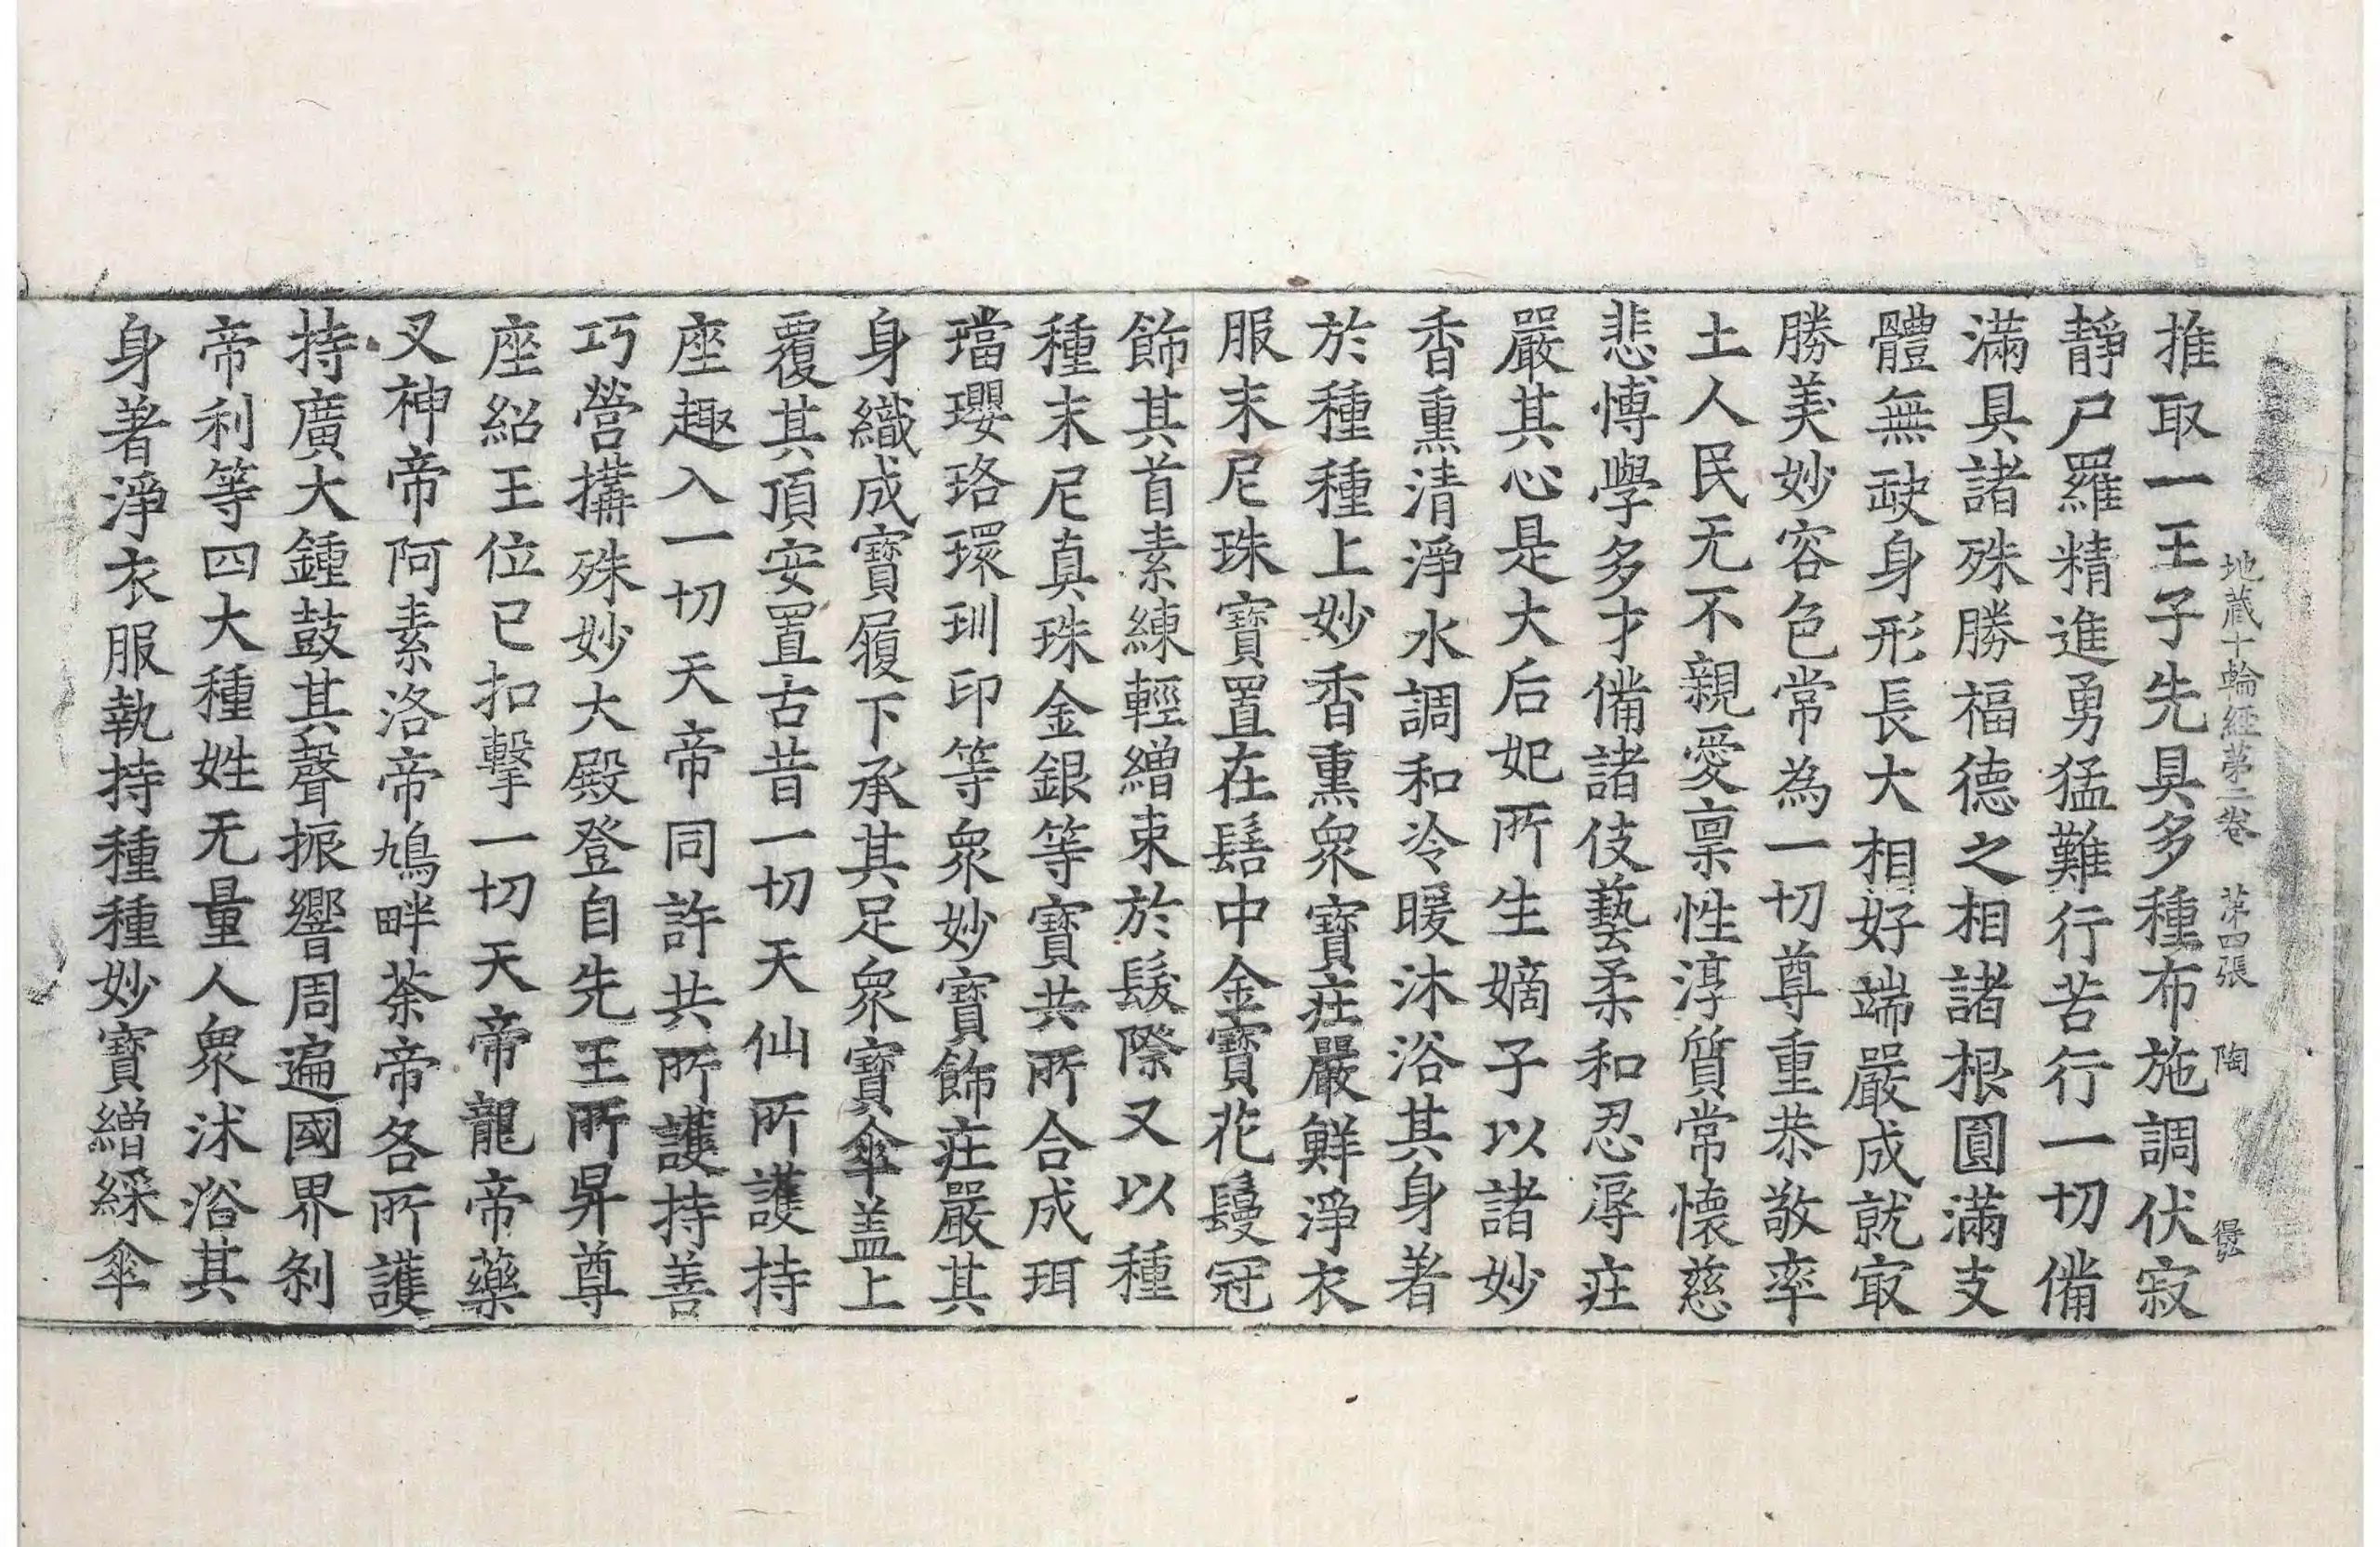 地藏十輪經第二卷 第四張 陶 疊
推取一王子先具多種布施調伏寂
靜尸羅精進勇猛難行苦行一切備
滿具諸殊勝福德之相諸根圓滿支
體無䟽身形長大相好端嚴成就㝡
勝美妙容色常為一切尊重恭敬率
土人民无不親愛禀性淳質常懷慈
悲愽學多才備諸伎藝柔和忍辱㽵
嚴其心是大后妃所生嫡子以諸妙
香熏清淨水調和冷暖沐浴其身著
於種種上妙香熏衆寶㽵嚴鮮淨衣
服末尼珠寶置在髻中金寶花鬘冠
飾其首素練輕繒束於髮際又以種
種末尼真珠金銀等寶共所合成珥
璫瓔珞環玔印等衆妙寶飾㽵嚴其
身織成寶履下承其足衆寶傘盖上
覆其頂安置古昔一切天仙所護持
座趣入一切天帝同許共所護持善
巧營搆殊妙大殿登自先王所昇尊
座紹王位已扣擊一切天帝龍帝藥
叉神帝阿素洛帝鳩畔荼帝各所護
持廣大鍾鼓其聲振響周遍國界剎
帝利等四大種姓无量人衆沐浴其
身著淨衣服執持種種妙寶繒綵傘